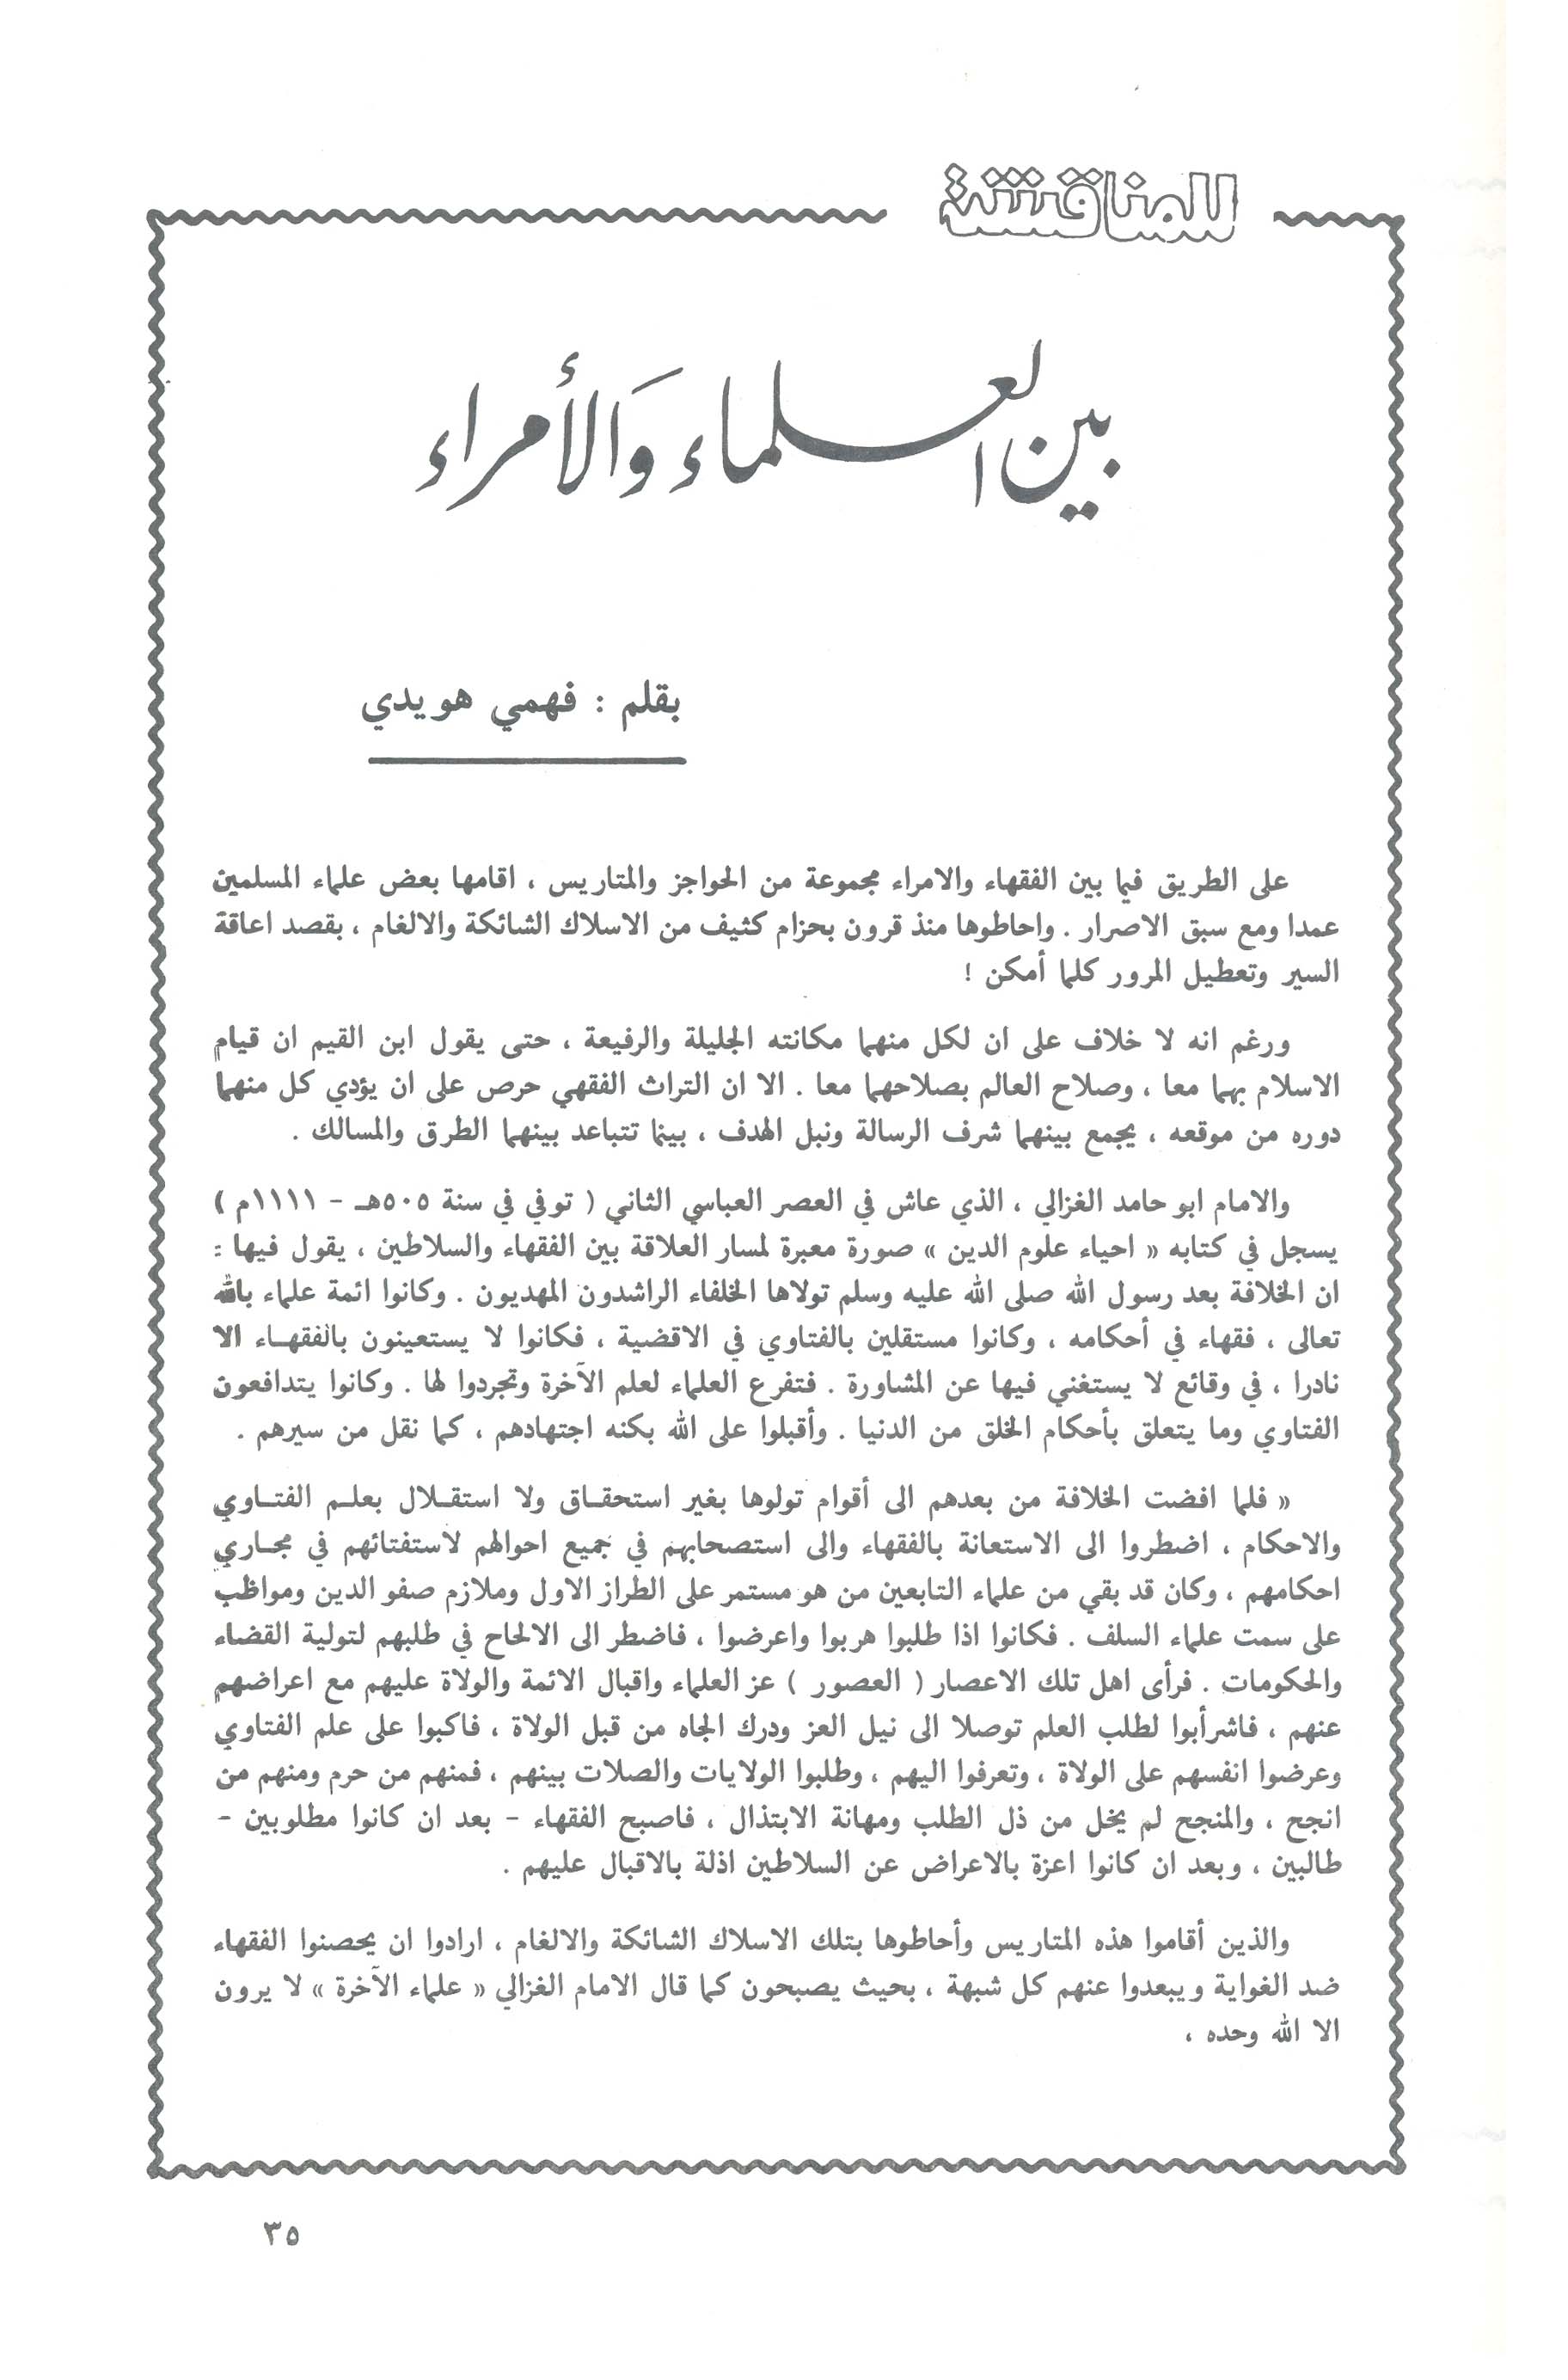 للمناقشة
بين العلماء والأمراء
بقلم : فهمي هويدي
على الطريق فيما بين الفقهاء والامراء مجموعة من الحواجز والمتاريس ، اقامها بعض علماء المسلمين
عمدا ومع سبق الاصرار . واحاطوها منذ قرون بحزام كثيف من الاسلاك الشائكة والالغام ، بقصد اعاقة
السير وتعطيل المرور كلما أمكن !
ورغم انه لا خلاف على ان لكل منهما مكانته الجليلة والرفيعة ، حتى يقول ابن القيم ان قيام
الاسلام بهما معا ، وصلاح العالم بصلاحهما معا . الا ان التراث الفقهي حرص على ان يؤدي كل منهما
دوره من موقعه ، يجمع بينهما شرف الرسالة ونبل الهدف ، بينما تتباعد بينهما الطرق والمسالك .
والامام ابو حامد الغزالي ، الذي عاش في العصر العباسي الثاني ( توفي في سنة ٥٠٥هـ - ١١١١م )
يسجل في كتابه « احياء علوم الدين » صورة معبرة لمسار العلاقة بين الفقهاء والسلاطين ، يقول فيها :
ان الخلافة بعد رسول الله صلى الله عليه وسلم تولاها الخلفاء الراشدون المهديون . وكانوا ائمة علماء بالله
تعالى ، فقهاء في أحكامه ، وكانوا مستقلين بالفتاوي في الاقضية ، فكانوا لا يستعينون بالفقهـاء الا
نادرا ، في وقائع لا يستغني فيها عن المشاورة . فتفرع العلماء لعلم الآخرة وتجردوا لها . وكانوا يتدافعون
الفتاوي وما يتعلق بأحكام الخلق من الدنيا . وأقبلوا على الله بكنه اجتهادهم ، كما نقل من سيرهم .
« فلما افضت الخلافة من بعدهم الى أقوام تولوها بغير استحقـاق ولا استقـلال بعلـم الفتـاوي
والاحكام ، اضطروا الى الاستعانة بالفقهاء والى استصحابهم في جميع احوالهم لاستفتائهم في مجـاري
احكامهم ، وكان قد بقي من علماء التابعين من هو مستمر على الطراز الاول وملازم صفو الدين ومواظب
على سمت علماء السلف . فكانوا اذا طلبوا هربوا واعرضوا ، فاضطر الى الالحاح في طلبهم لتولية القضاء
والحكومات . فرأى اهل تلك الاعصار ( العصور ) عز العلماء واقبال الائمة والولاة عليهم مع اعراضهم
عنهم ، فاشرأبوا لطلب العلم توصلا الى نيل العز ودرك الجاه من قبل الولاة ، فاكبوا على علم الفتاوي
وعرضوا انفسهم على الولاة ، وتعرفوا اليهم ، وطلبوا الولايات والصلات بينهم ، فمنهم من حرم ومنهم من
انجح ، والمنجح لم يخل من ذل الطلب ومهانة الابتذال ، فاصبح الفقهاء - بعد ان كانوا مطلوبين -
طالبين ، وبعد ان كانوا اعزة بالاعراض عن السلاطين اذلة بالاقبال عليهم .
والذين أقاموا هذه المتاريس وأحاطوها بتلك الاسلاك الشائكة والالغام ، ارادوا ان يحصنوا الفقهاء
ضد الغواية ويبعدوا عنهم كل شبهة ، بحيث يصبحون كما قال الامام الغزالي « علماء الآخرة » لا يرون
الا الله وحده ،
٣٥